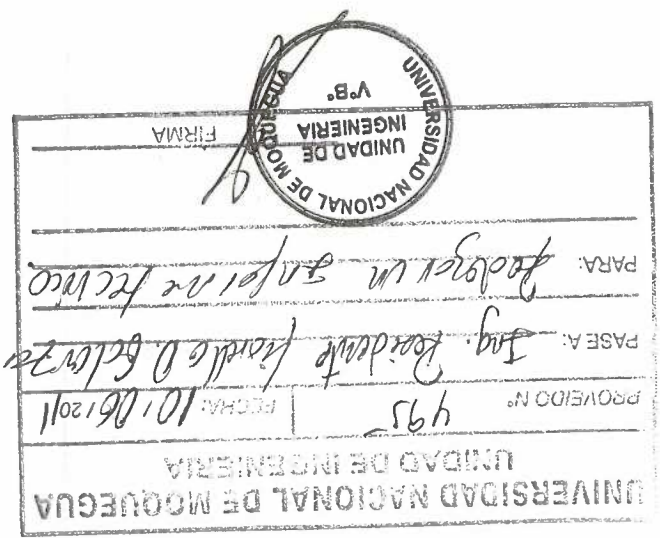 UNIVERSIDAD NACIONAL DE MOQUEGUA
UNIDAD DE INGENIERIA
PROVEIDO N° 495 FECHA: 10/06/2011
PASE A: Ing. Residente O.
PARA: Informe técnico.
FIRMA
UNIVERSIDAD NACIONAL DE MOQUEGUA
UNIDAD DE
INGENIERIA
V°B°